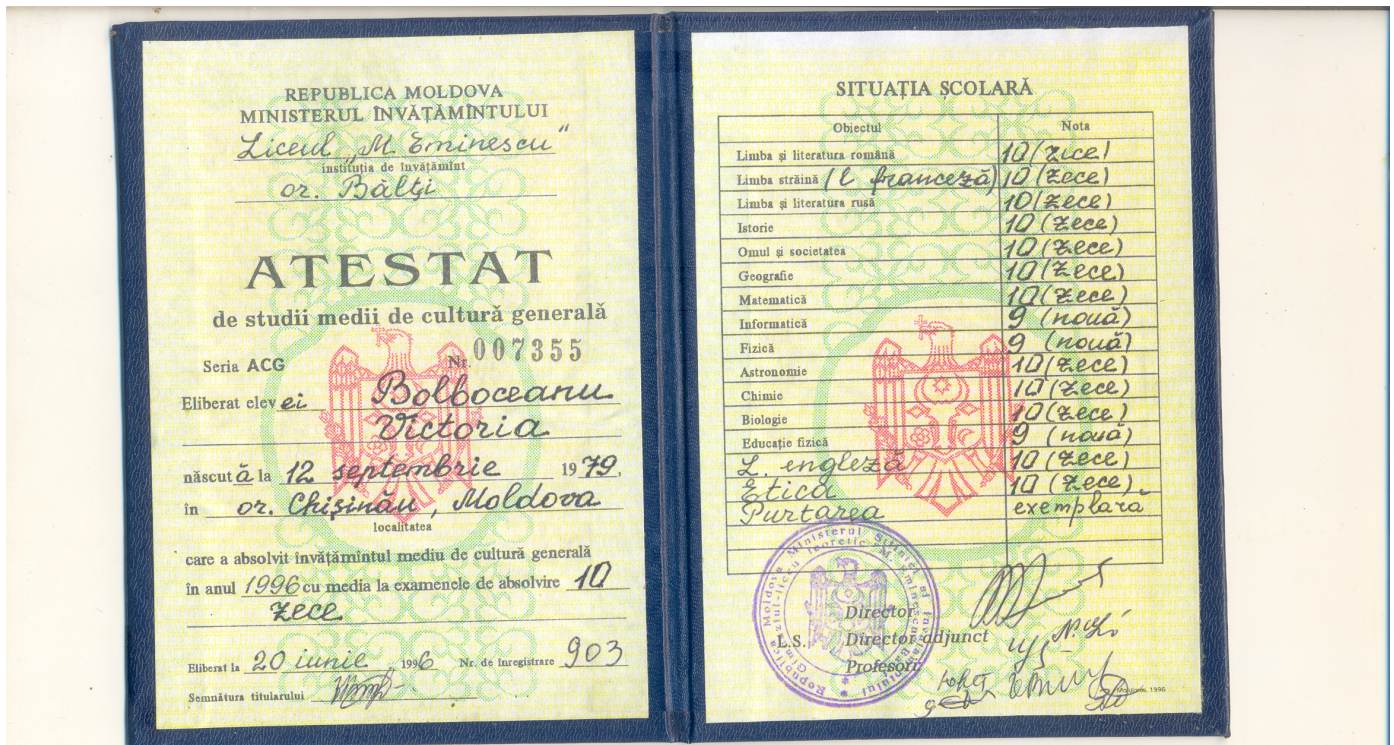 REPUBLICA MOLDOVA
MINISTERUL ÎNVĂŢĂMÎNTULUI
Liceul „M. Eminescu"
instituţia de învăţămînt
or. Bălţi
ATESTAT
de studii medii de cultură generală
Seria ACG Nr. 007355
Eliberat elev ei Bolboceanu
Victoria
născut ă la 12 septembrie 1979,
în or. Chişinău, Moldova
localitatea
care a absolvit învăţămîntul mediu de cultură generală
în anul 1996 cu media la examenele de absolvire 10
zece
Eliberat la 20 iunie 1996 Nr. de înregistrare 903
Semnătura titularului
SITUAŢIA ŞCOLARĂ
Obiectul Nota
Limba şi literatura română 10 (zece)
Limba străină (l franceză) 10 (zece)
Limba şi literatura rusă 10 (zece)
Istorie 10 (zece)
Omul şi societatea 10 (zece)
Geografie 10 (zece)
Matematică 10 (zece)
Informatică 9 (nouă)
Fizică 9 (nouă)
Astronomie 10 (zece)
Chimie 10 (zece)
Biologie 10 (zece)
Educaţie fizică 9 (nouă)
L. engleză 10 (zece)
Etica 10 (zece)
Purtarea exemplară
Director
L.S. Director adjunct
Profesori
1996